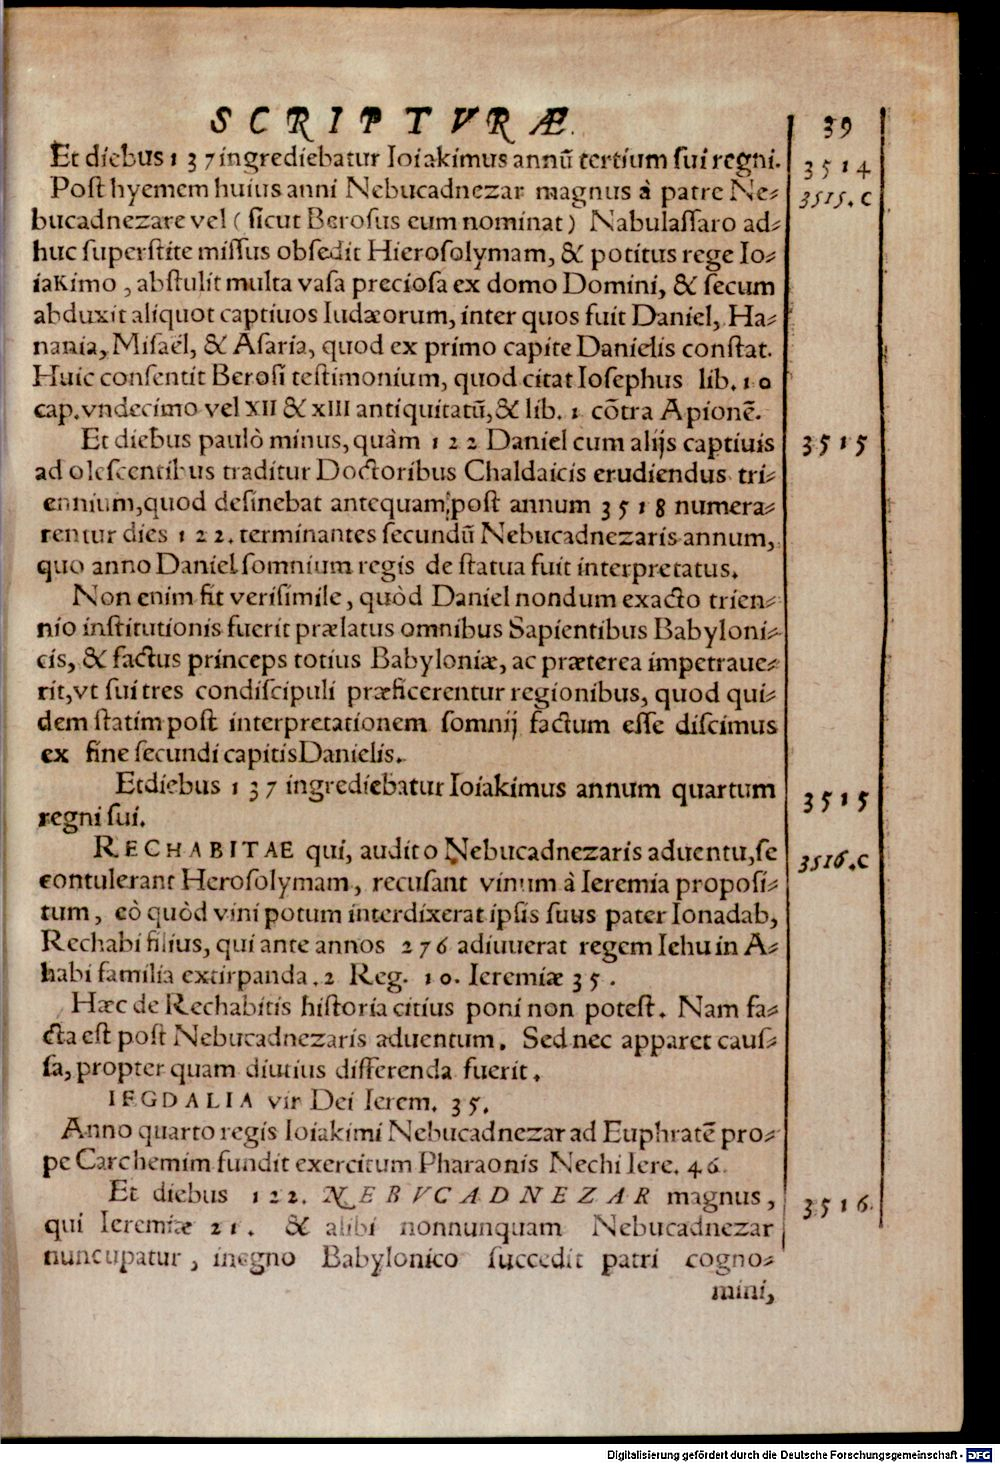 SCRIPTVRÆ. 39
Et diebus 137 ingrediebatur Ioiakimus annũ tertium sui regni. 3514
Post hyemem huius anni Nebucadnezar magnus à patre Ne- 3515.C
bucadnezare vel (sicut Berosus eum nominat) Nabulassaro ad-
huc superstite missus obsedit Hierosolymam, & potitus rege Io-
iakimo, abstulit multa vasa preciosa ex domo Domini, & secum
abduxit aliquot captiuos Iudæorum, inter quos fuit Daniel, Ha-
nania, Misaël, & Asaria, quod ex primo capite Danielis constat.
Huic consentit Berosi testimonium, quod citat Iosephus lib. 10
cap. vndecimo vel XII & XIII antiquitatũ, & lib. 1 cõtra Apionẽ.
Et diebus paulò minus, quàm 122 Daniel cum alijs captiuis 3515
adolescentibus traditur Doctoribus Chaldaicis erudiendus tri-
ennium, quod desinebat antequam post annum 3518 numera-
rentur dies 122. terminantes secundũ Nebucadnezaris annum,
quo anno Daniel somnium regis de statua fuit interpretatus.
Non enim fit verisimile, quòd Daniel nondum exacto trien-
nio institutionis fuerit prælatus omnibus Sapientibus Babyloni-
cis, & factus princeps totius Babyloniæ, ac præterea impetraue-
rit, vt sui tres condiscipuli præficerentur regionibus, quod qui-
dem statim post interpretationem somnij factum esse discimus
ex fine secundi capitis Danielis.
Et diebus 137 ingrediebatur Ioiakimus annum quartum 3515
regni sui.
RECHABITAE qui, audito Nebucadnezaris aduentu, se 3516.C
contulerant Herosolymam, recusant vinum à Ieremia proposi-
tum, eò quòd vini potum interdixerat ipsis suus pater Ionadab,
Rechabi filius, qui ante annos 276 adiuuerat regem Iehu in A-
habi familia extirpanda. 2 Reg. 10. Ieremiæ 35.
Hæc de Rechabitis historia citius poni non potest. Nam fa-
cta est post Nebucadnezaris aduentum. Sed nec apparet caus-
sa, propter quam diutius differenda fuerit.
IEGDALIA vir Dei Ierem. 35.
Anno quarto regis Ioiakimi Nebucadnezar ad Euphratẽ pro-
pe Carchemim fundit exercitum Pharaonis Nechi Iere. 46.
Et diebus 122. NEBVCADNEZAR magnus, 3516.
qui Ieremiæ 21. & alibi nonnunquam Nebucadnezar
nuncupatur, inegno Babylonico succedit patri cogno-
mini,
Digitalisierung gefördert durch die Deutsche Forschungsgemeinschaft - DFG